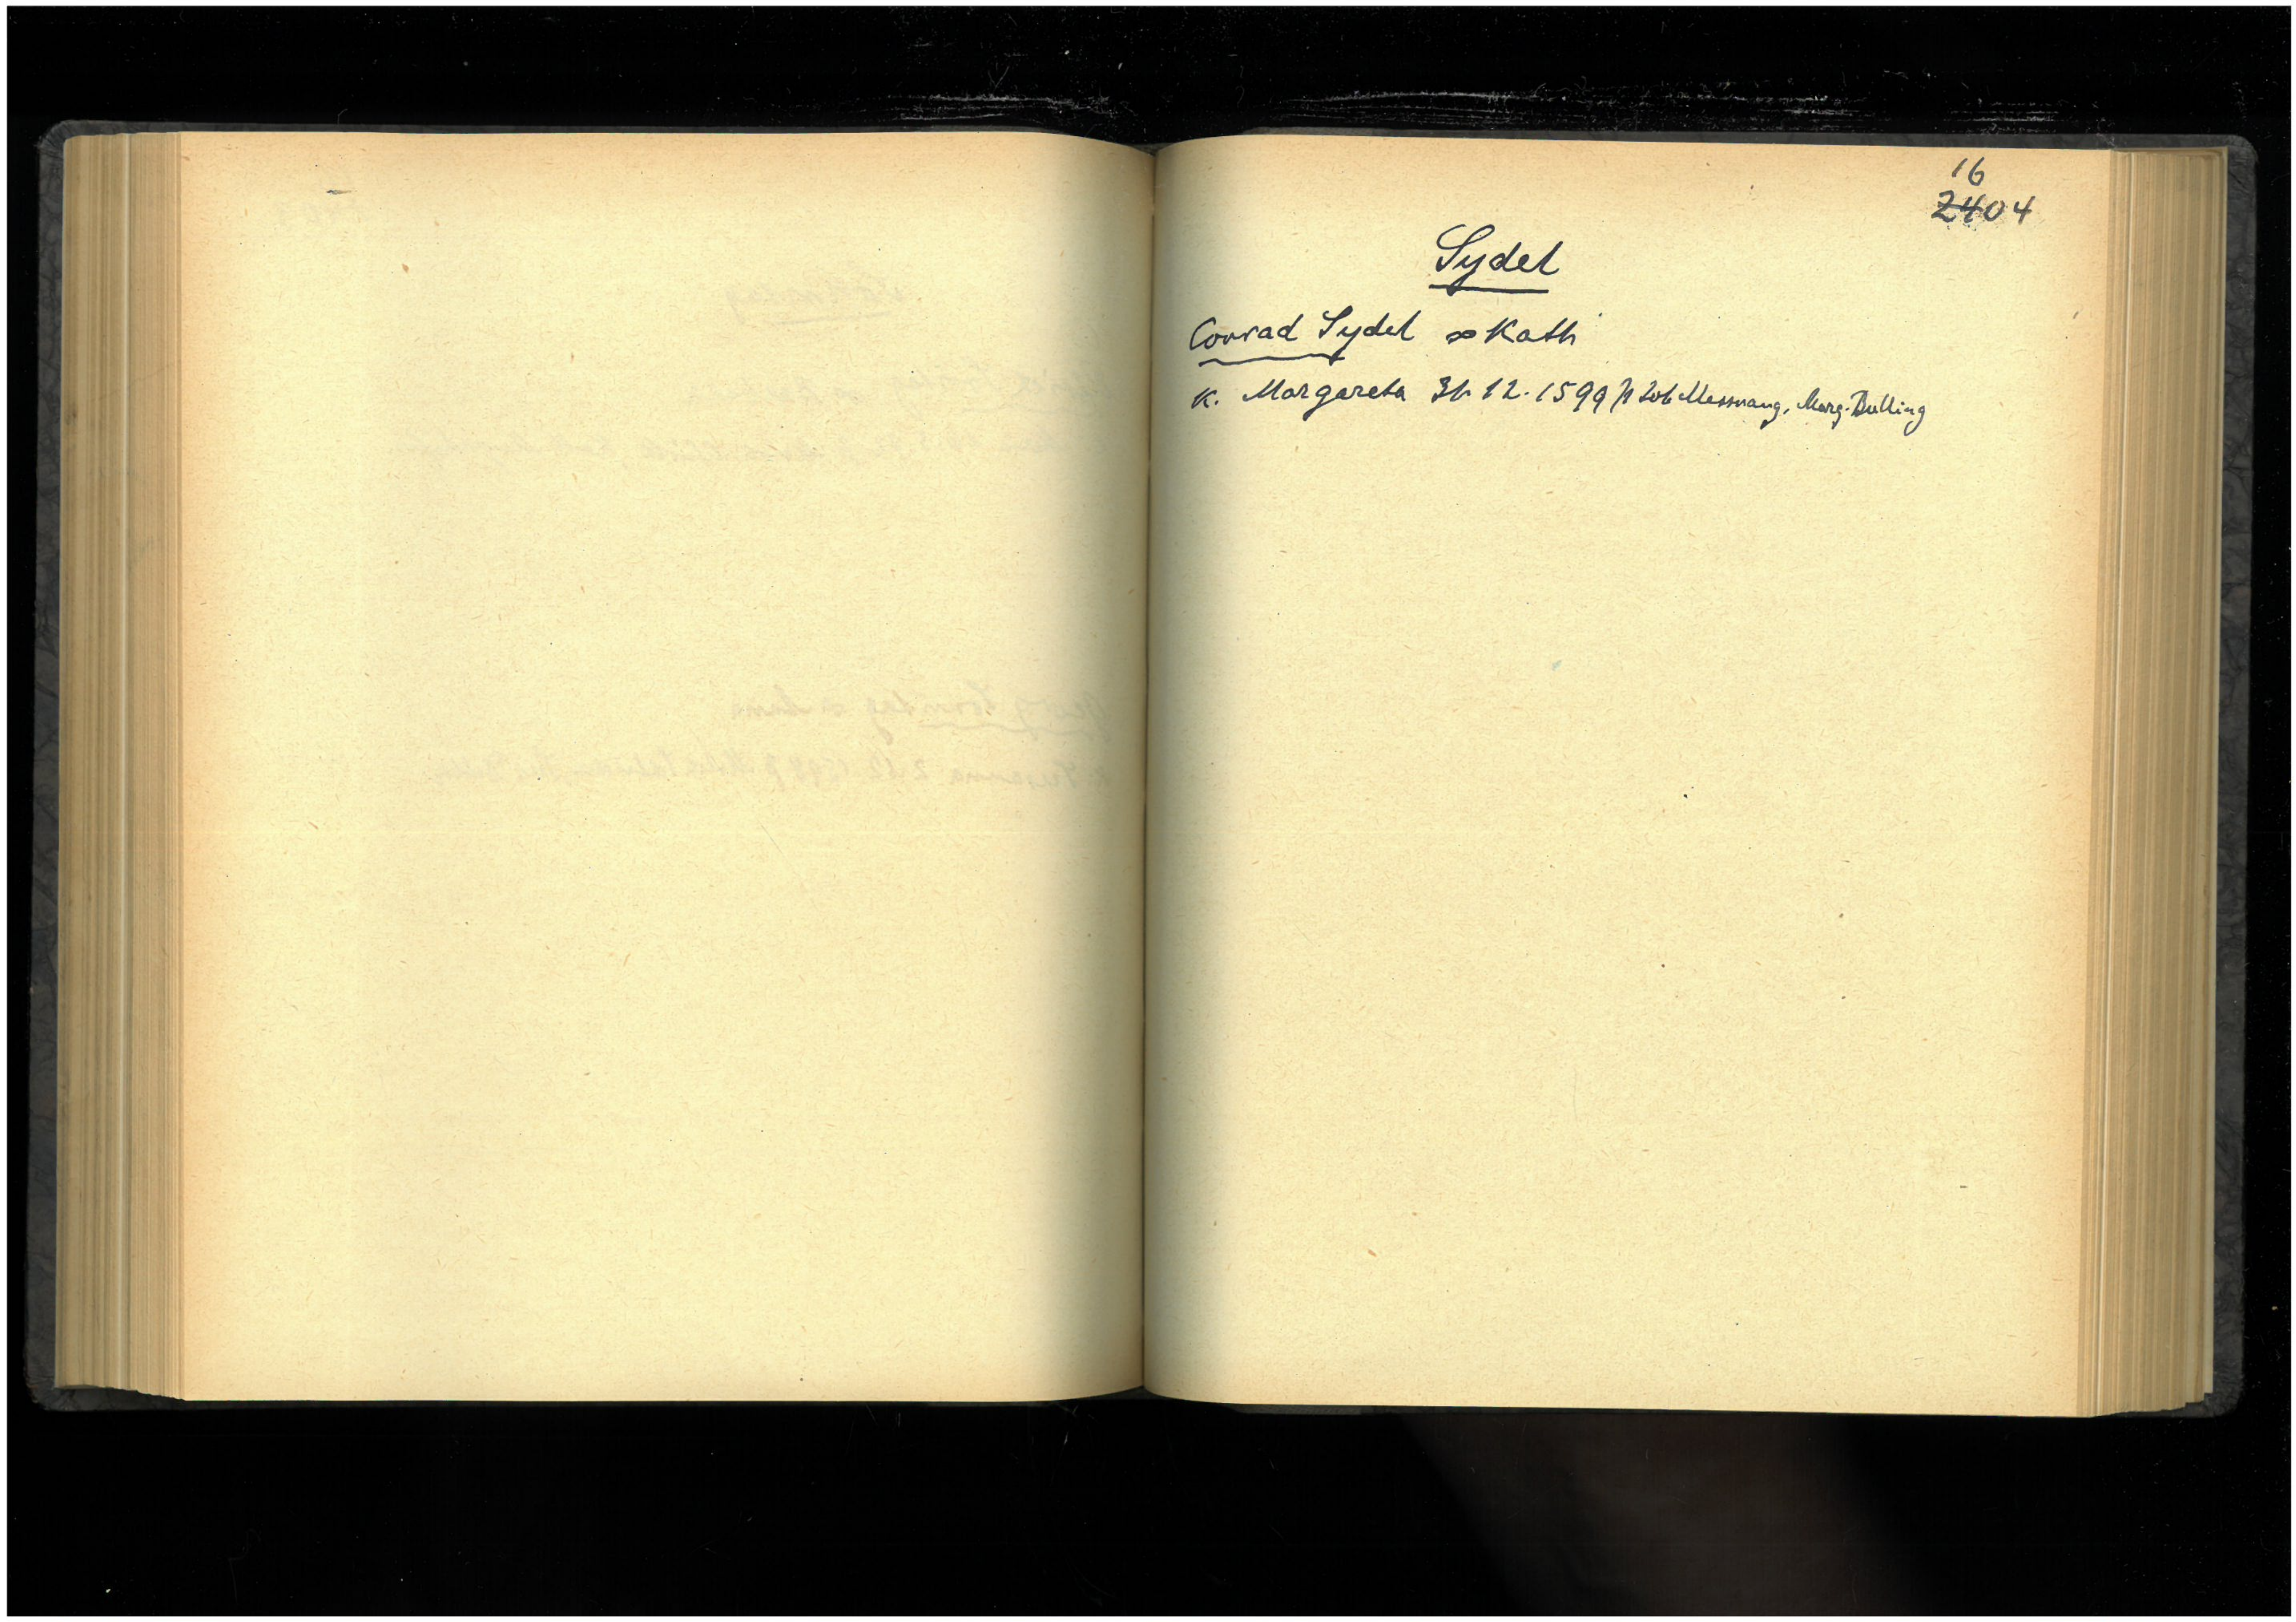 16
2404
Sydel
Conrad Sydel ∞ Kath
K. Margareta 31. 12. 1599 p Marg. Bulling